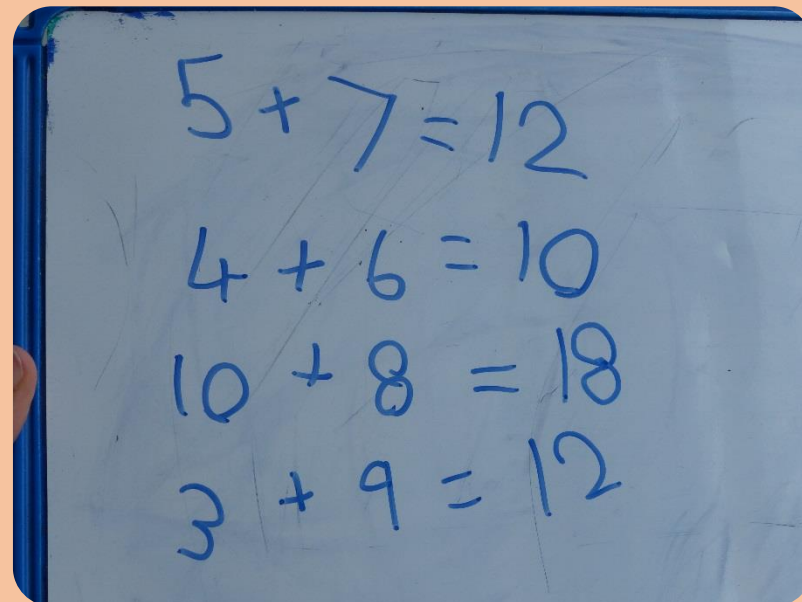 5 + 7 = 12
4 + 6 = 10
10 + 8 = 18
3 + 9 = 12